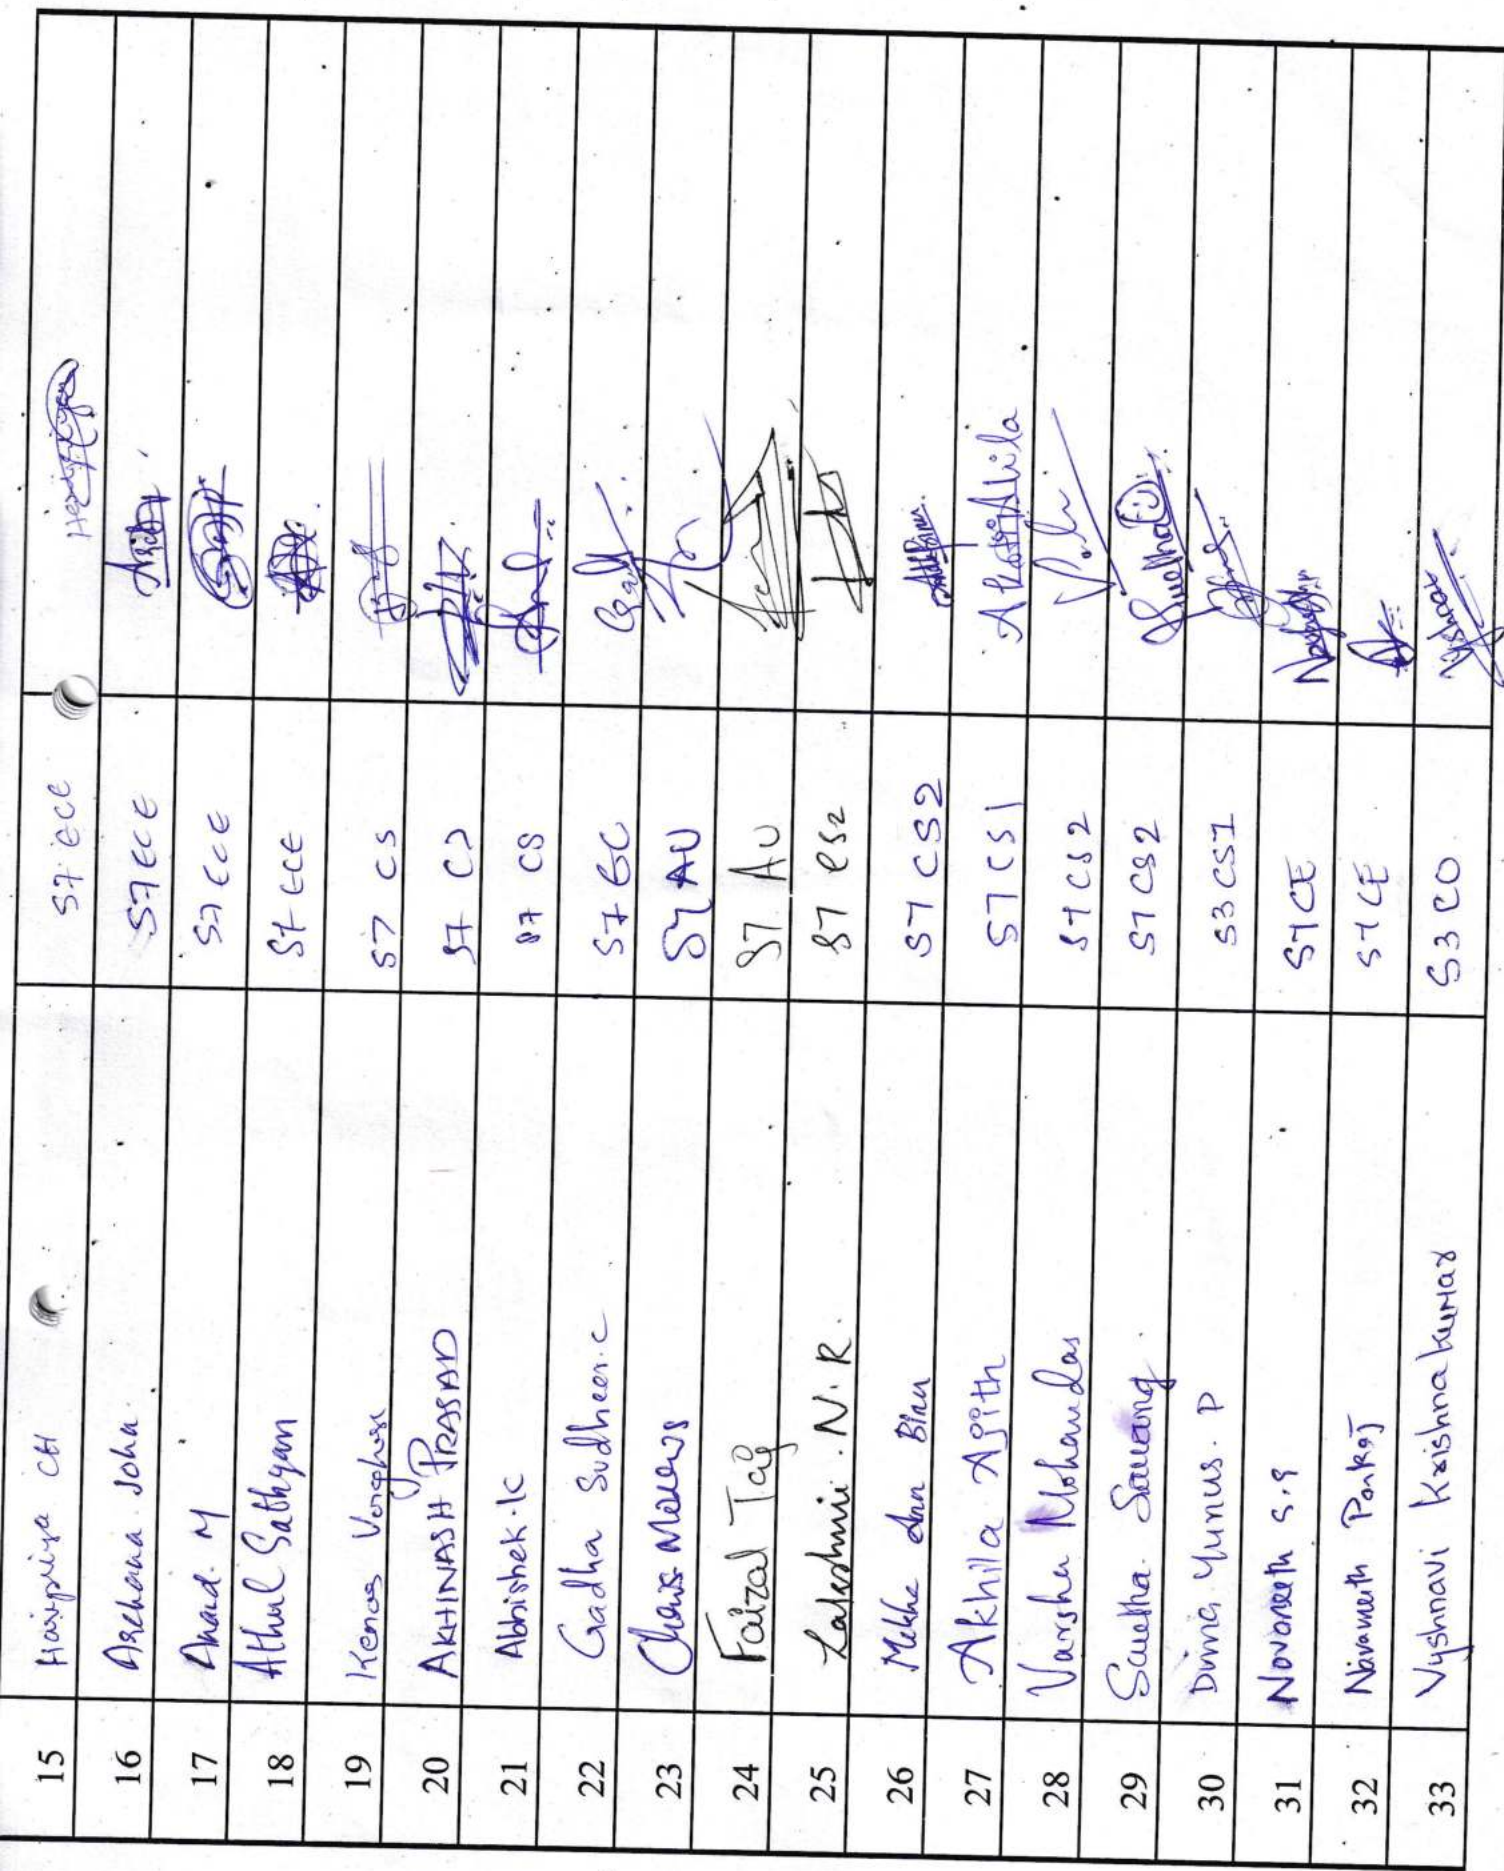 15 Haripriya CH S7 ECE Haripriya
16 Archana John. S7 ECE
17 Anand. M S7 ECE
18 Athul Sathyan S7 ECE
19 Varghese S7 CS
20 AKHINASH PRASAD S7 CS
21 Abhishek.K S7 CS
22 Gadha Sudheer.C S7 EC
23 S7 AU
24 Faizal Taj S7 AU
25 Lakshmi. N. R. S7 CS2
26 Mekha Ann Binu S7 CS2
27 Akhilla Ajith S7 CS1
28 Varsha Mohandas S7 CS2
29 Swetha S7 CS2
30 Yunus. P S3 CS1
31 Navaneeth S.S S7 CE
32 Navaneeth Pankaj S7 CE
33 Vyshnavi Krishnakumar S3 CO